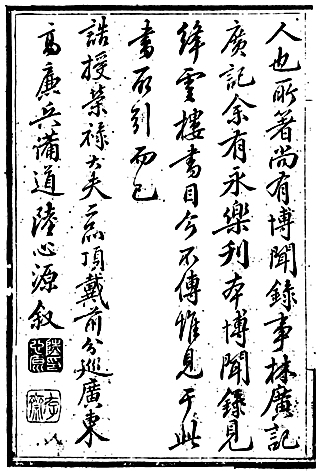 人也所箸尚有博聞錄事林廣記
廣記余有永樂刊本博聞錄見
絳雲樓書目今不傳惟見于此
書所引而已
誥授榮祿大夫二品頂戴前分巡廣東
高廉兵備道陸心源叙
存齋